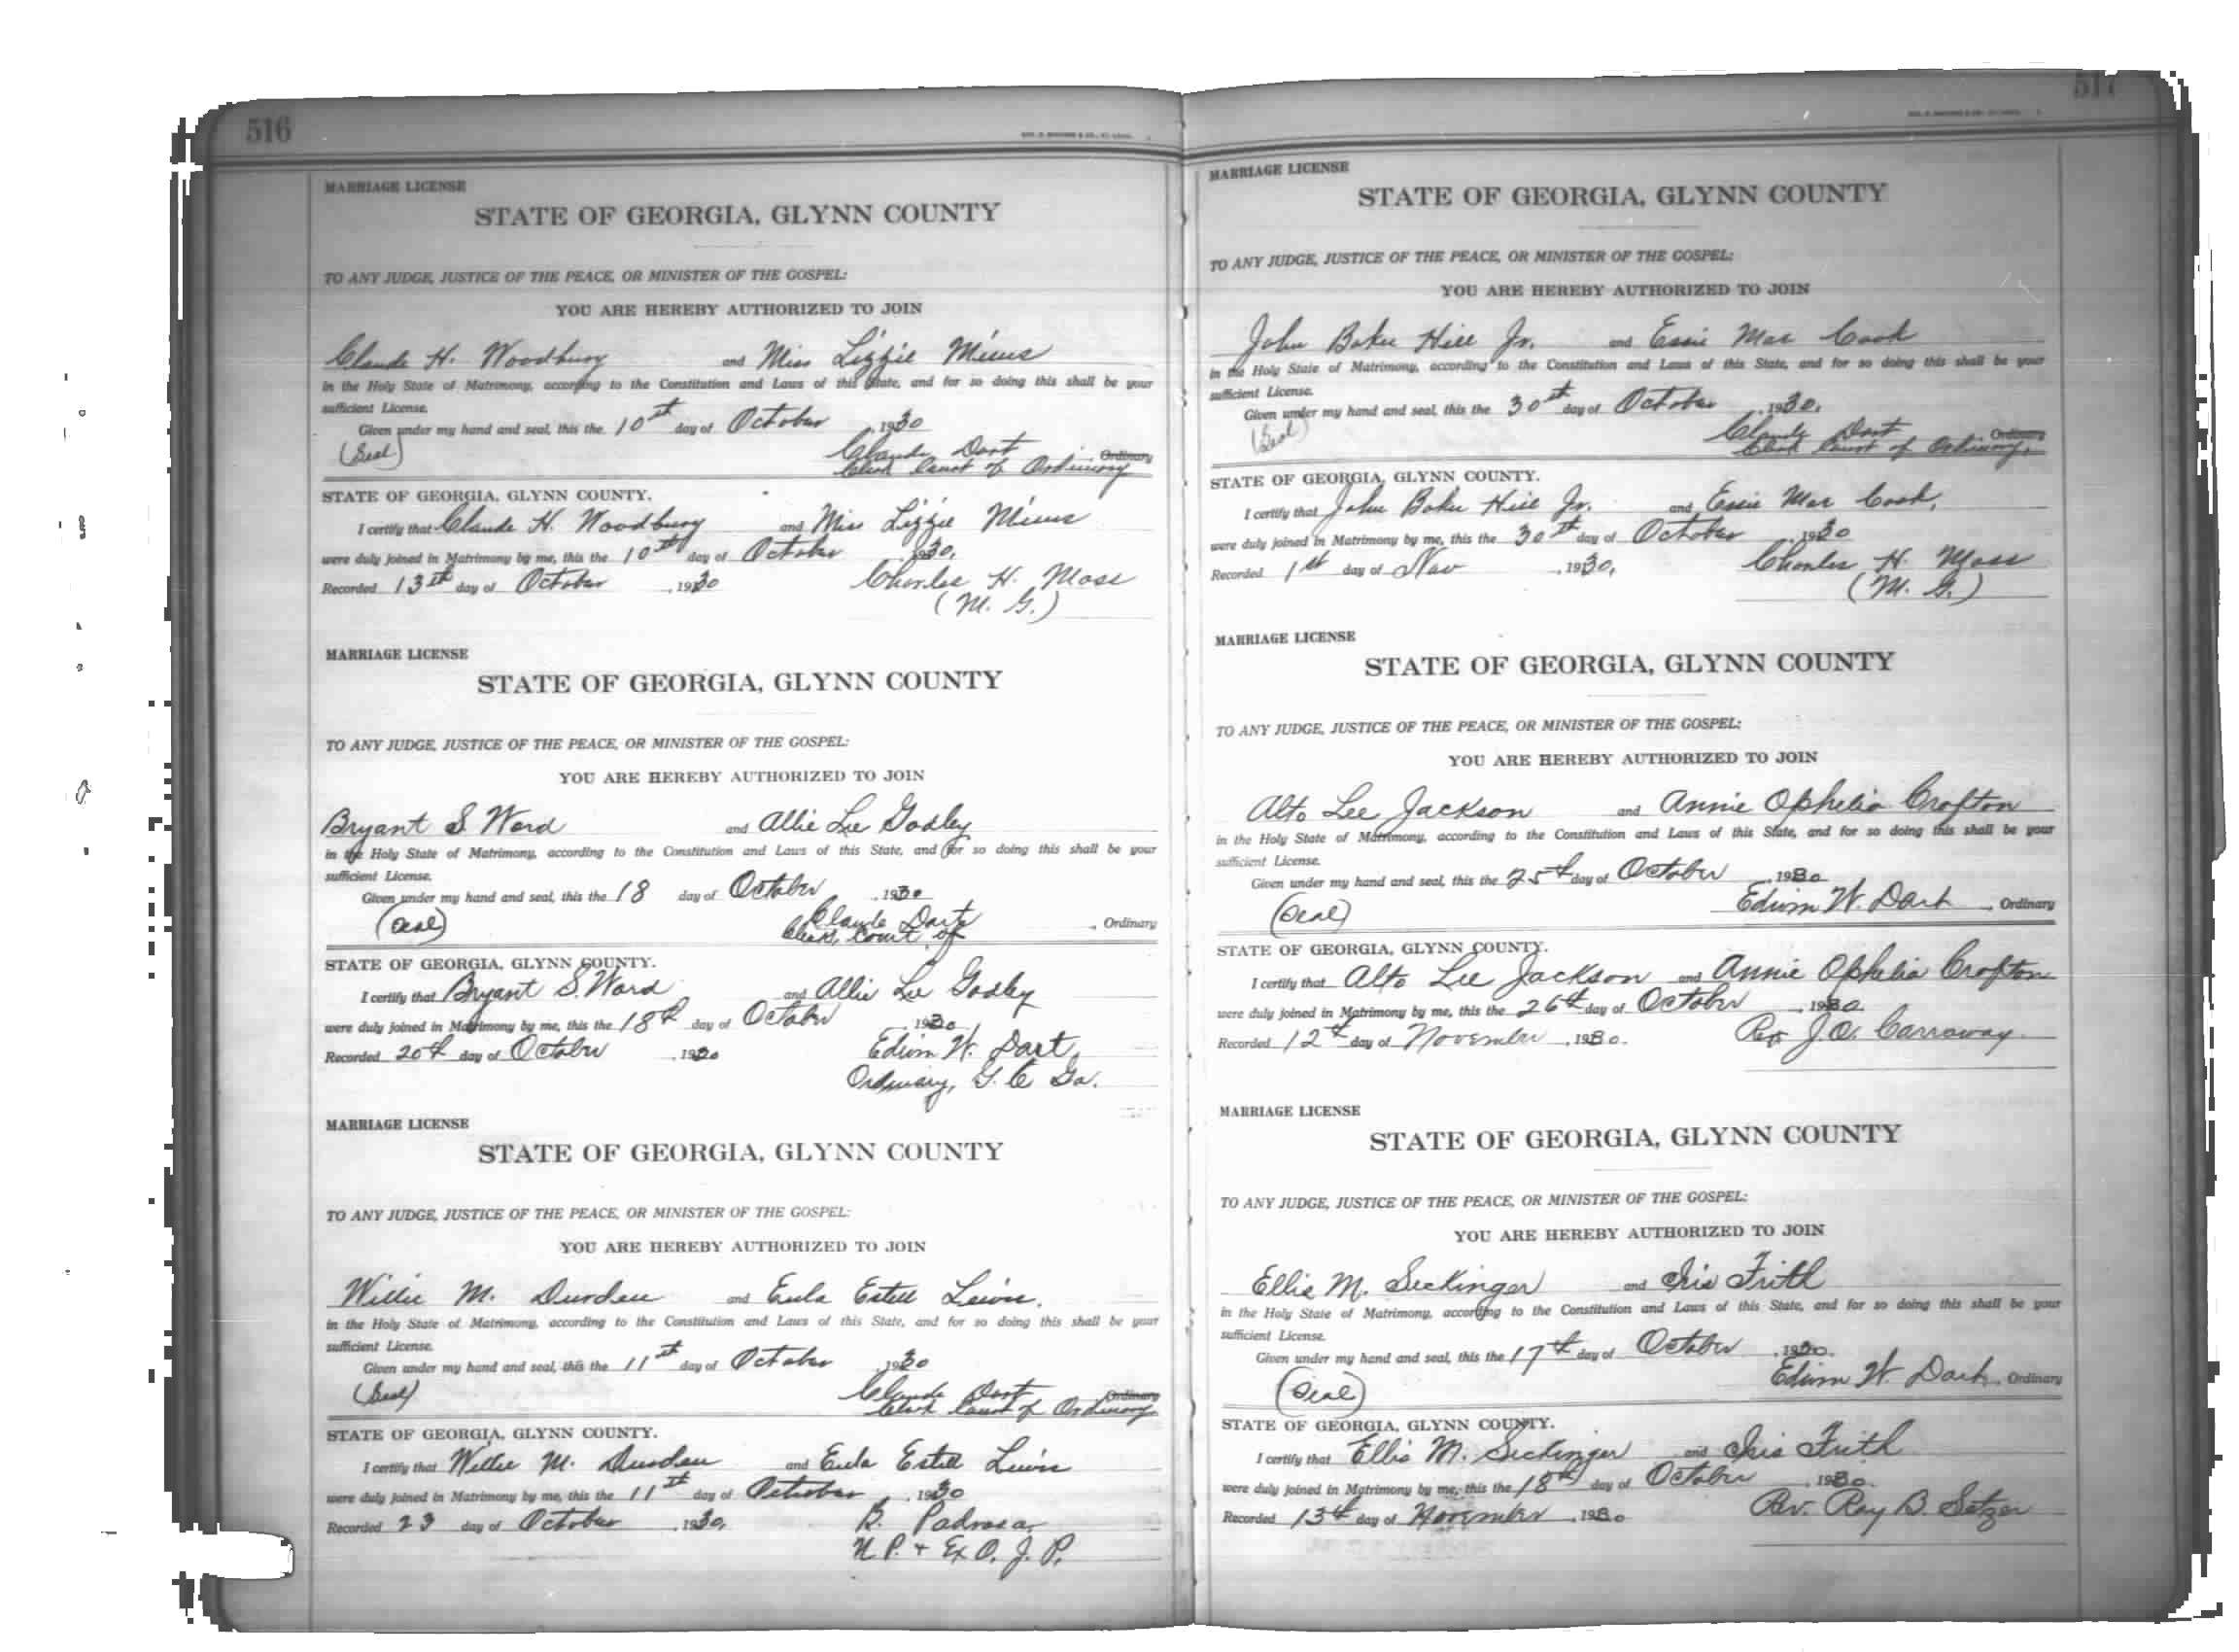 516
MARRIAGE LICENSE
STATE OF GEORGIA, GLYNN COUNTY
TO ANY JUDGE, JUSTICE OF THE PEACE, OR MINISTER OF THE GOSPEL:
YOU ARE HEREBY AUTHORIZED TO JOIN
Claude H. Woodbury and Miss Lizzie Mims
in the Holy State of Matrimony, according to the Constitution and Laws of this State, and for so doing this shall be your
sufficient License.
Given under my hand and seal, this the 10th day of October, 1930
(Seal) Claude Dart, Ordinary
Clerk Court of Ordinary
STATE OF GEORGIA, GLYNN COUNTY.
I certify that Claude H. Woodbury and Miss Lizzie Mims
were duly joined in Matrimony by me, this the 10th day of October 1930.
Recorded 13th day of October, 1930 Charles H. Moss
(M. G.)
MARRIAGE LICENSE
STATE OF GEORGIA, GLYNN COUNTY
TO ANY JUDGE, JUSTICE OF THE PEACE, OR MINISTER OF THE GOSPEL:
YOU ARE HEREBY AUTHORIZED TO JOIN
Bryant S. Ward and Allie Lee Godley
in the Holy State of Matrimony, according to the Constitution and Laws of this State, and for so doing this shall be your
sufficient License.
Given under my hand and seal, this the 18 day of October, 1930
(Seal) Claude Dart, Ordinary
Clerk, Court of
STATE OF GEORGIA, GLYNN COUNTY.
I certify that Bryant S. Ward and Allie Lee Godley
were duly joined in Matrimony by me, this the 18th day of October, 1930
Recorded 20th day of October, 1930 Edwin W. Dart,
Ordinary, G. C. Ga.
MARRIAGE LICENSE
STATE OF GEORGIA, GLYNN COUNTY
TO ANY JUDGE, JUSTICE OF THE PEACE, OR MINISTER OF THE GOSPEL:
YOU ARE HEREBY AUTHORIZED TO JOIN
Willie M. Durden and Eula Estell Lewis.
in the Holy State of Matrimony, according to the Constitution and Laws of this State, and for so doing this shall be your
sufficient License.
Given under my hand and seal, this the 11th day of October, 1930
(Seal) Claude Dart Ordinary
Clerk Court of Ordinary
STATE OF GEORGIA, GLYNN COUNTY.
I certify that Willie M. Durden and Eula Estell Lewis
were duly joined in Matrimony by me, this the 11th day of October, 1930
Recorded 23 day of October, 1930. B. Padrosa,
N. P. + Ex O. J. P.
517
MARRIAGE LICENSE
STATE OF GEORGIA, GLYNN COUNTY
TO ANY JUDGE, JUSTICE OF THE PEACE, OR MINISTER OF THE GOSPEL:
YOU ARE HEREBY AUTHORIZED TO JOIN
John Baker Hill Jr. and Essie Mae Cook
in the Holy State of Matrimony, according to the Constitution and Laws of this State, and for so doing this shall be your
sufficient License.
Given under my hand and seal, this the 30th day of October, 1930.
(Seal) Claude Dart, Ordinary
Clerk Court of Ordinary.
STATE OF GEORGIA, GLYNN COUNTY.
I certify that John Baker Hill Jr. and Essie Mae Cook,
were duly joined in Matrimony by me, this the 30th day of October, 1930
Recorded 1st day of Nov, 1930. Charles H. Moss
(M. G.)
MARRIAGE LICENSE
STATE OF GEORGIA, GLYNN COUNTY
TO ANY JUDGE, JUSTICE OF THE PEACE, OR MINISTER OF THE GOSPEL:
YOU ARE HEREBY AUTHORIZED TO JOIN
Alto Lee Jackson and Annie Ophelia Crofton
in the Holy State of Matrimony, according to the Constitution and Laws of this State, and for so doing this shall be your
sufficient License.
Given under my hand and seal, this the 25th day of October, 1930
(Seal) Edwin W. Dart, Ordinary
STATE OF GEORGIA, GLYNN COUNTY.
I certify that Alto Lee Jackson and Annie Ophelia Crofton
were duly joined in Matrimony by me, this the 26th day of October, 1930.
Recorded 12th day of November, 1930. Rev J. O. Carraway.
MARRIAGE LICENSE
STATE OF GEORGIA, GLYNN COUNTY
TO ANY JUDGE, JUSTICE OF THE PEACE, OR MINISTER OF THE GOSPEL:
YOU ARE HEREBY AUTHORIZED TO JOIN
Ellis M. Seckinger and Iris Frith
in the Holy State of Matrimony, according to the Constitution and Laws of this State, and for so doing this shall be your
sufficient License.
Given under my hand and seal, this the 17th day of October, 1930.
(Seal) Edwin W. Dart, Ordinary
STATE OF GEORGIA, GLYNN COUNTY.
I certify that Ellis M. Seckinger and Iris Frith
were duly joined in Matrimony by me, this the 18th day of October, 1930.
Recorded 13th day of November, 1930 Rev. Ray B. Setzer